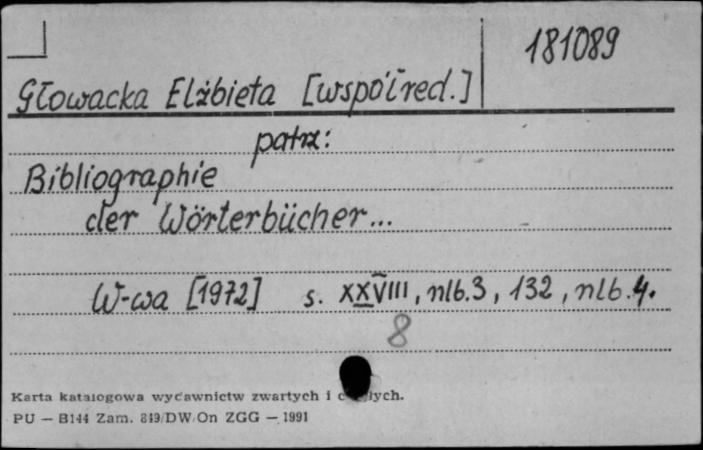 181089
Głowacka Elżbieta [współred.]
patrz:
Bibliographie
der Wörterbücher...
W-wa [1972] s. XXVIII, nlb.3, 132, nlb.4.
8
Karta katalogowa wydawnictw zwartych i
PU — B144 Zam. 849/DW/On ZGG — 1991